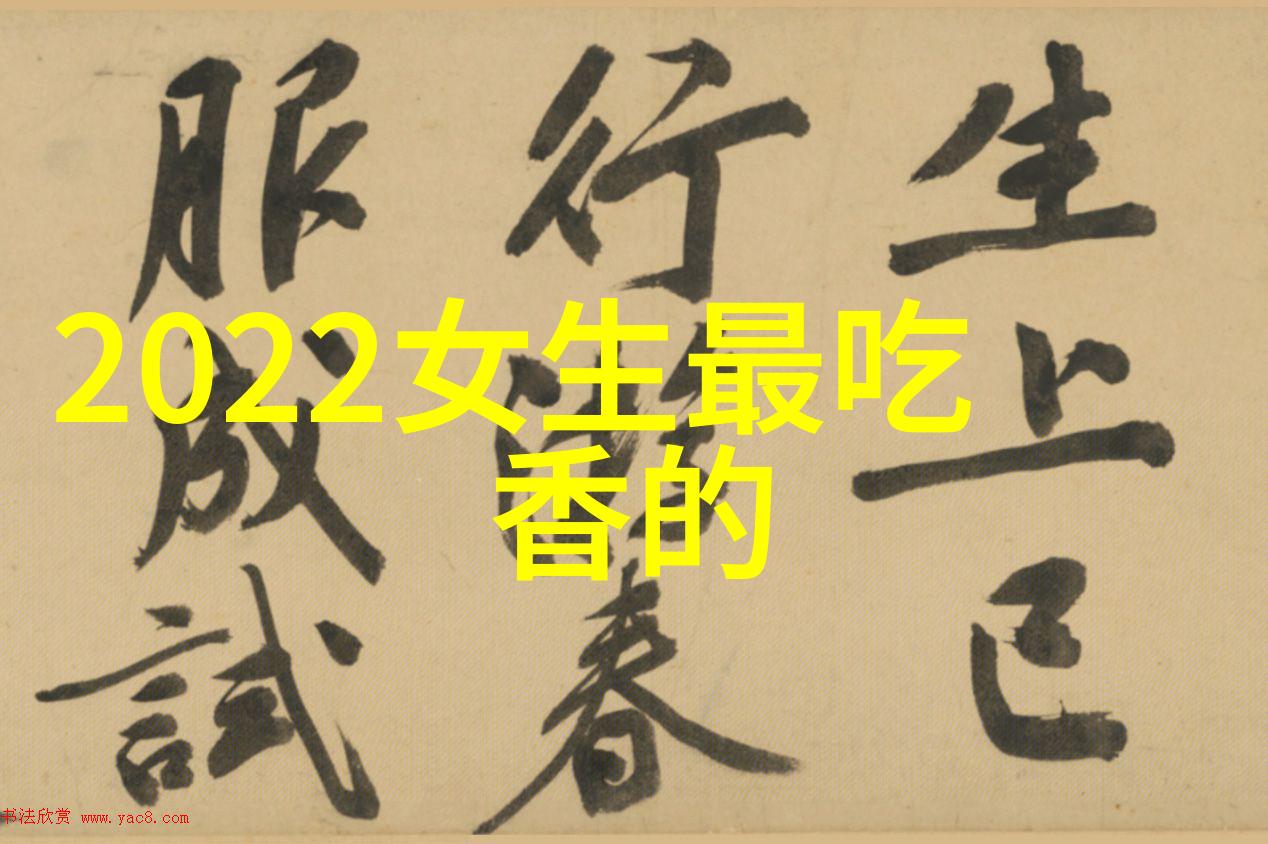 生上已
行時春
服成試
2022女生最吃
香的
书法欣赏 www.yac8.com